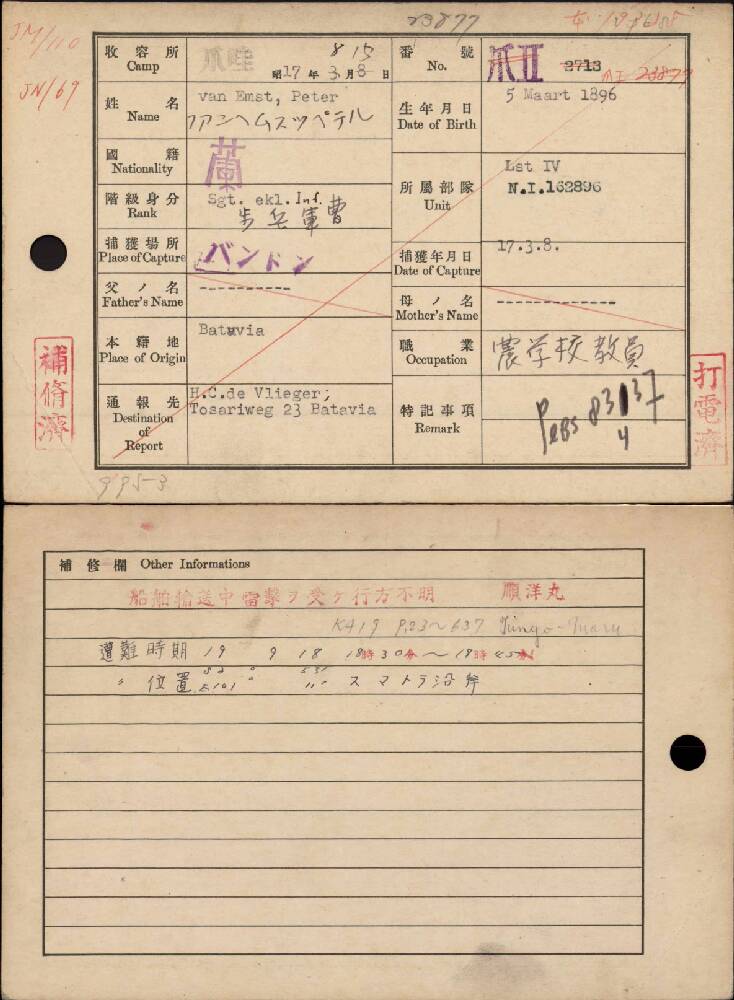 23877
JM/110
JN/69
收容所 Camp
爪哇
8 15
昭17年3月8日
番號 No.
爪II 2713
MI 23877
姓名 Name
van Emst, Peter
ファンヘムスツペテル
生年月日 Date of Birth
5 Maart 1896
國籍 Nationality
蘭
階級身分 Rank
Sgt. ekl. Inf.
歩兵軍曹
所屬部隊 Unit
Lst IV
N.I.162896
捕獲場所 Place of Capture
バンドン
捕獲年月日 Date of Capture
17.3.8.
父ノ名 Father's Name
-----------
母ノ名 Mother's Name
--------------
本籍地 Place of Origin
Batavia
職業 Occupation
農学校教員
通報先 Destination of Report
H.C.de Vlieger;
Tosariweg 23 Batavia
特記事項 Remark
83137
4
補脩濟
打電濟
995-3
補修欄 Other Informations
船舶輸送中雷撃ヲ受ケ行方不明 順洋丸
K419 P.23~637 Jungo-Maru
遭難時期 19 9 18 18時30分~18時45分
〃 位置 スマトラ沿岸